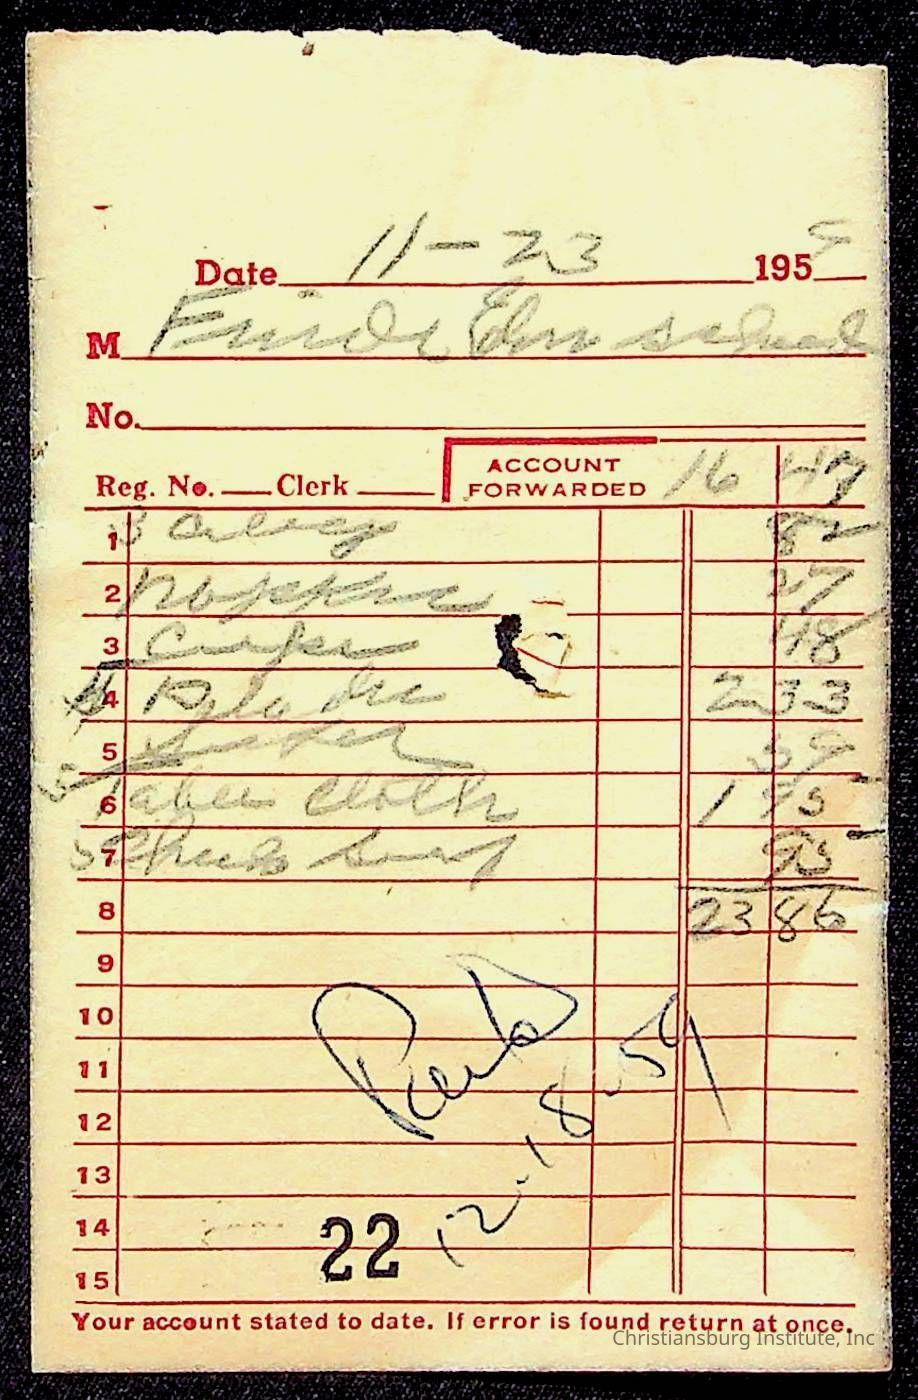 Date 11-23 1959
M Friends Elm school
No.
Reg. No. Clerk ACCOUNT FORWARDED 16 47
1 3 82
2 Napkins 27
3 Cups 48
4 2 33
5 39
6 Table cloth 1 75
7 95
8 23 86
9
10 Paid
11
12 12-18-59
13
14
15 22
Your account stated to date. If error is found return at once.
Christiansburg Institute, Inc